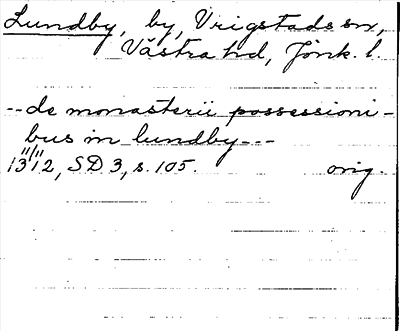 Lundby, by, Vrigstads sn,
Västra hd, Jönk. l.
-- de monasterii possessioni-
bus in lundby ---
1312, SD 3, s. 105. orig.